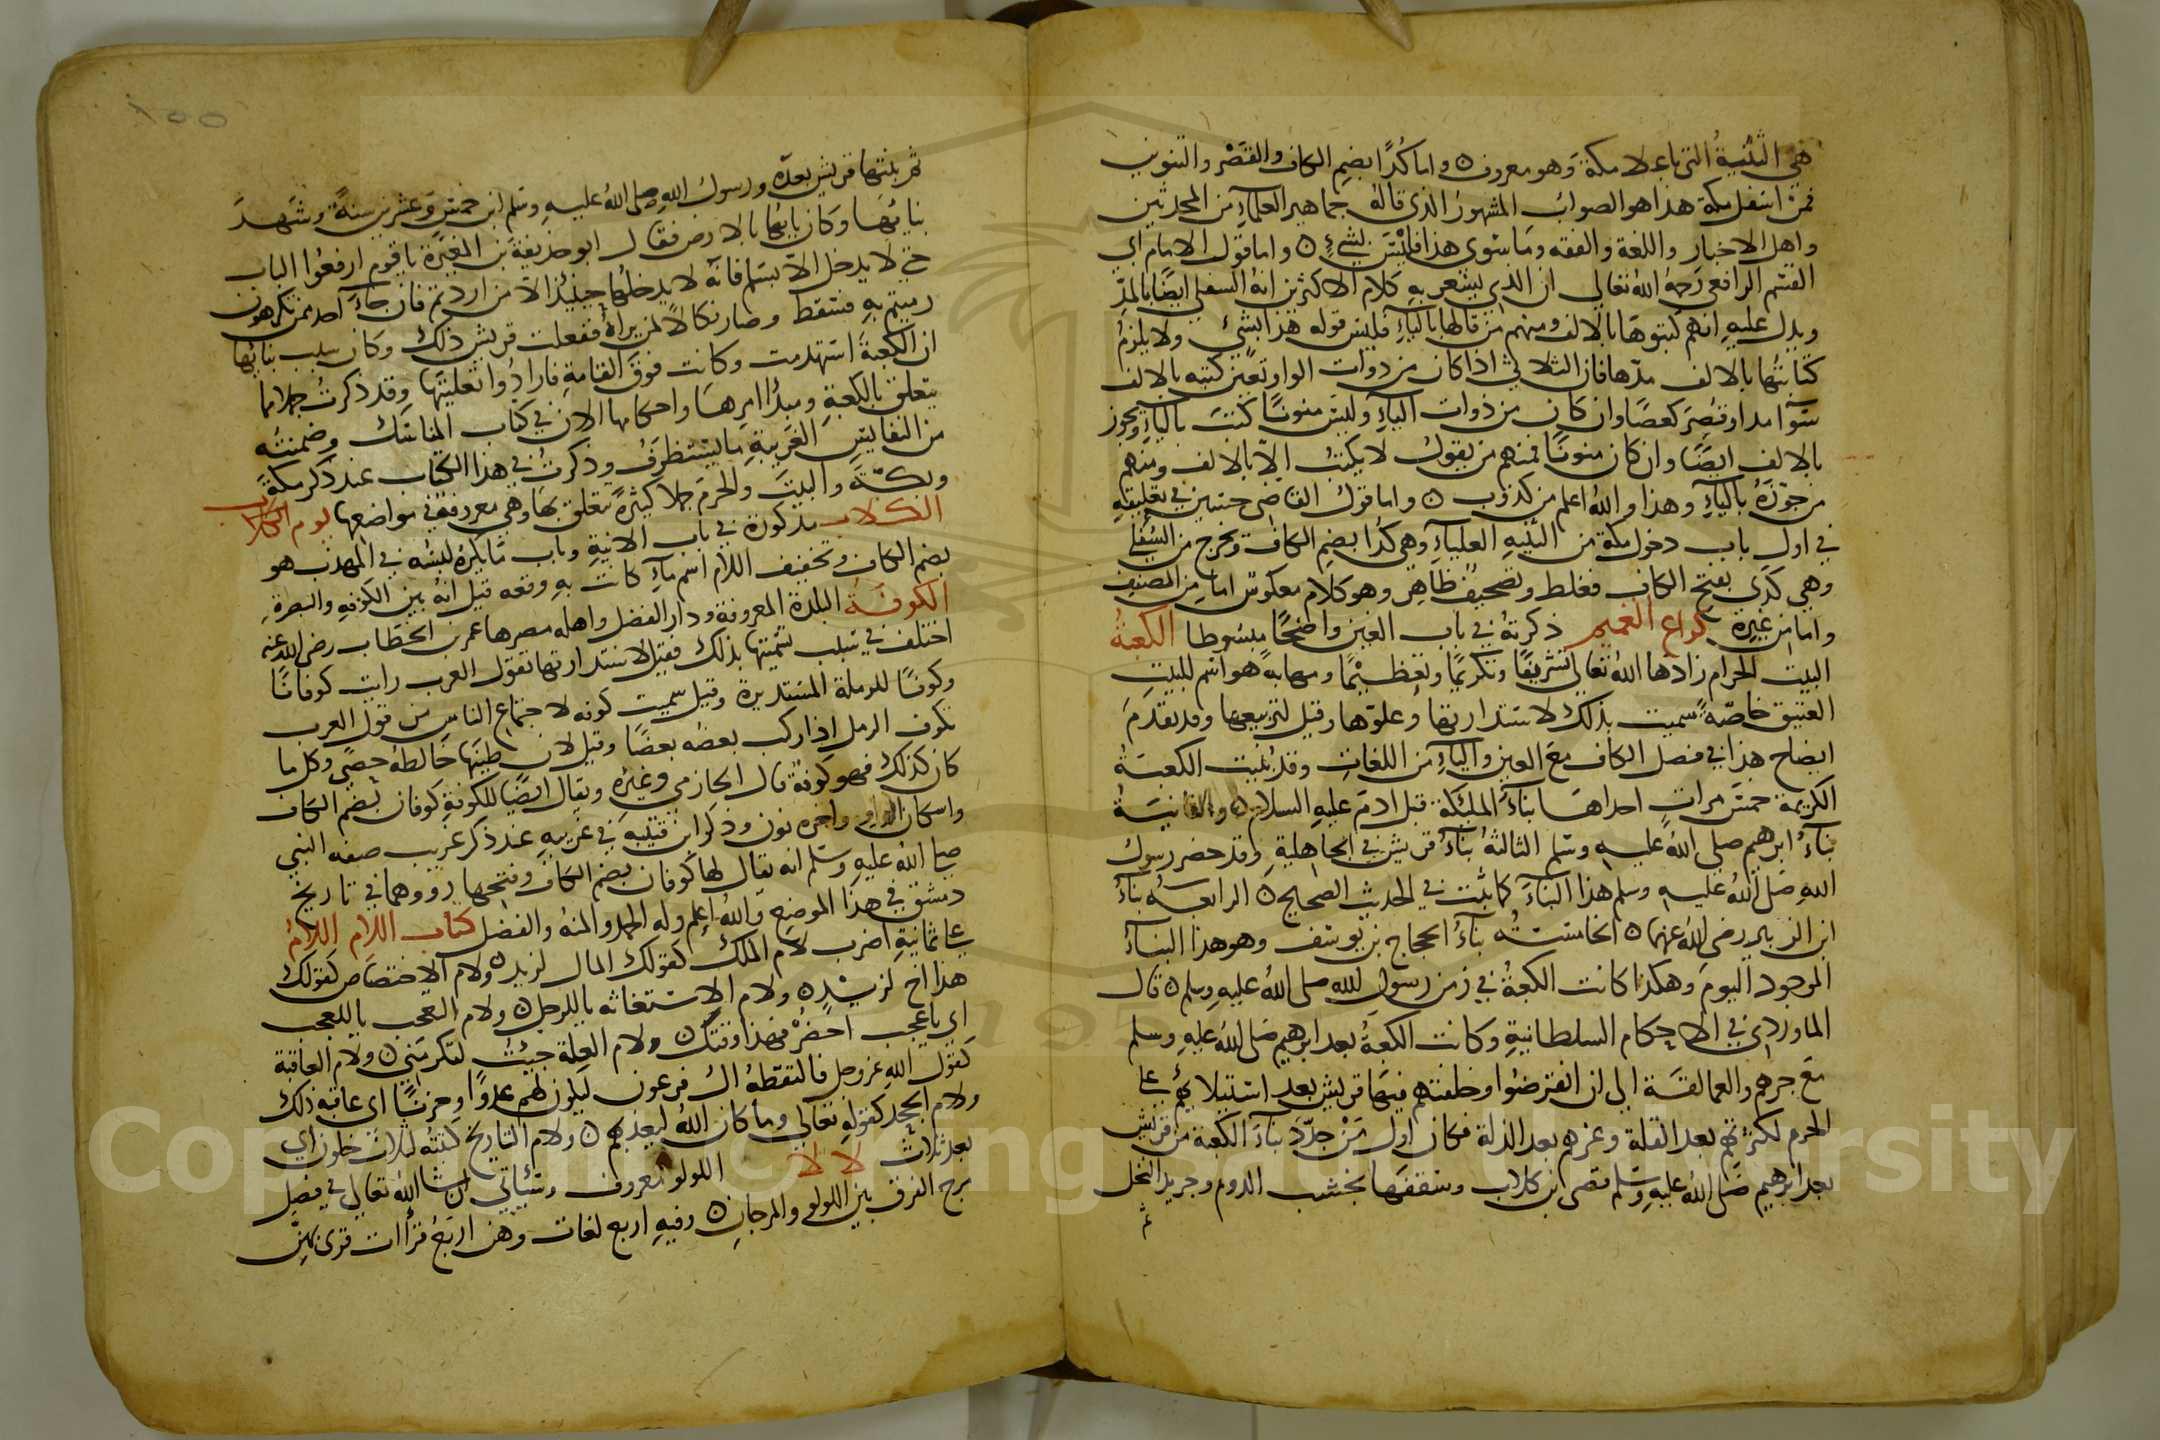 هي الثنية التي باعلا مكة وهو معروف ٥ واما كدًا بضم الكاف والقصر والتنوين
فمن اسفل مكة هذا هو الصواب المشهور الذي قاله جماهير العلماء من المحدثين
واهل الاخبار واللغة والفقه وما سوى هذا فليس بشيء ٥ واما قول الامام ابي
القسم الرافعي رحمه الله تعالى ان الذي يشعر به كلام الاكثرين انه السفلي ايضا بالمد
ويدل عليه انهم كتبوها بالالف ومنهم من قالها بالياء فليس قوله هذا بشيء ولا يلزم
كتابتها بالالف مدها فان الثلاثي اذا كان من ذوات الواو تعين كتبه بالالف
سوآ مد او قصر كعصا وان كان من ذوات الياء وليس منونا كتبت بالياء ويجوز
بالالف ايضا وان كان منونا فمنهم من يقول لا يكتب الا بالالف ومنهم
من جوزه بالياء وهذا والله اعلم من كدوت ٥ واما قول القاضي حسين في تعليقه
في اول باب دخول مكة من الثنيه العلياء وهي كدا بضم الكاف وتخرج من السفلي
وهي كدى بفتح الكاف فغلط وتصحيف ظاهر وهو كلام معكوس اما من المصنف
واما من غيره كراع الغميم ذكرته في باب الغين واضحا مبسوطا الكعبة
البيت الحرام زادها الله تعالى تشريفا وتكريما وتعظيما ومهابة هو اسم للبيت
العتيق خاصة سميت بذلك لاستدارتها وعلوها وقيل لتربيعها وقد تقدم
ايضاح هذا في فصل الكاف مع العين والياء من اللغات وقد بنيت الكعبة
الكريمة خمس مرات احداها بناء الملئكة قبل ادم عليه السلام ٥ والثانية
بناء ابرهيم صلى الله عليه وسلم الثالثة بناء قريش في الجاهلية وقد حضر رسول
الله صلى الله عليه وسلم هذا البناء كما ثبت في الحديث الصحيح ٥ الرابعة بناء
ابن الزبير رضي الله عنهما ٥ الخامسة بناء الحجاج بن يوسف وهو هذا البناء
الموجود اليوم وهكذا كانت الكعبة في زمن رسول الله صلى الله عليه وسلم ٥ قال
الماوردي في الاحكام السلطانية وكانت الكعبة بعد ابرهيم صلى الله عليه وسلم
مع جرهم والعمالقة الى ان انقرضوا وخلفتهم فيها قريش بعد استيلائهم على
الحرم لكثرتهم بعد القلة وعزهم بعد الذلة فكان اول من جدد بناء الكعبة من قريش
بعد ابرهيم صلى الله عليه وسلم قصي ابن كلاب وسقفها بخشب الدوم وجريد النخل
ثم
١٥٥
ثم بنتها قريش بعده ورسول الله صلى الله عليه وسلم ابن خمس وعشرين سنة وشهد
بنائها وكان بابها بالارض فقال ابو حذيفة بن المغيرة يا قوم ارفعوا الباب
حتى لا يدخل الا بسلم فانه لا يدخلها حينئذ الا من اردتم فان جاء احد ممن تكرهون
رميتم به فسقط وصار نكالا لمن يراه ففعلت قريش ذلك وكان سبب بنائها
ان الكعبة استهدمت وكانت فوق القامة فارادوا تعليتها وقد ذكرت جملا مما
يتعلق بالكعبة ومبدا امرها واحكامها الان في كتاب المناسك وضمنته
من النفايس الغريبة ما يستظرف وذكرت في هذا الكتاب عند ذكر مكة
وبكة والبيت والحرم جملا كثيرة تتعلق بها وهي معروفة في مواضعها يوم الكلاب
الكلاب مذكورة في باب الانية وباب ما يكره لبسه في المهذب هو
بضم الكاف وتخفيف اللام اسم ماء كانت به وقعه قيل انه بين الكوفه والبصرة
الكوفة البلدة المعروفة ودار الفضل واهله مصرها عمر بن الخطاب رضي الله عنه
اختلف في سبب تسميتها بذلك فقيل لاستدارتها تقول العرب رايت كوفانا
وكوفا للرملة المستديرة وقيل سميت كوفه لاجتماع الناس من قول العرب
تكوف الرمل اذا ركب بعضه بعضا وقيل لان طينها خالطه حصى وكل ما
كان كذلك فهو كوفة قال الحازمي وغيره ويقال ايضا للكوفة كوفان بضم الكاف
واسكان الواو واخره نون وذكر ابن قتيبه في غريبه عند ذكر غريب صفه النبي
صلى الله عليه وسلم انه يقال لها كوفان بضم الكاف وفتحها رووهما في تاريخ
دمشق في هذا الموضع والله اعلم وله الحمد والمنه والفضل كتاب اللام اللام
على ثمانية اضرب لام الملك كقولك المال لزيد ٥ ولام الاختصاص كقولك
هذا اخ لزيد ٥ ولام الاستغاثه ياللرجل ٥ ولام العجب ياللعجب
اي يا عجب احضر فهذا وقتك ٥ ولام العلة جيت لتكرمني ٥ ولام العاقبة
كقول الله عز وجل فالتقطه ال فرعون ليكون لهم عدوا وحزنا اي عاقبه ذلك
ولام الجحد كقوله تعالى وما كان الله ليعذبهم ٥ ولام التاريخ كتبته لثلاث خلون اي
بعد ثلاث لالا اللولو معروف وسياتي ان شا الله تعالى في فصل
مرج الفرق بين اللولو والمرجان ٥ وفيه اربع لغات وهن اربع قراات قرى بهن
Copyright © King Saud University